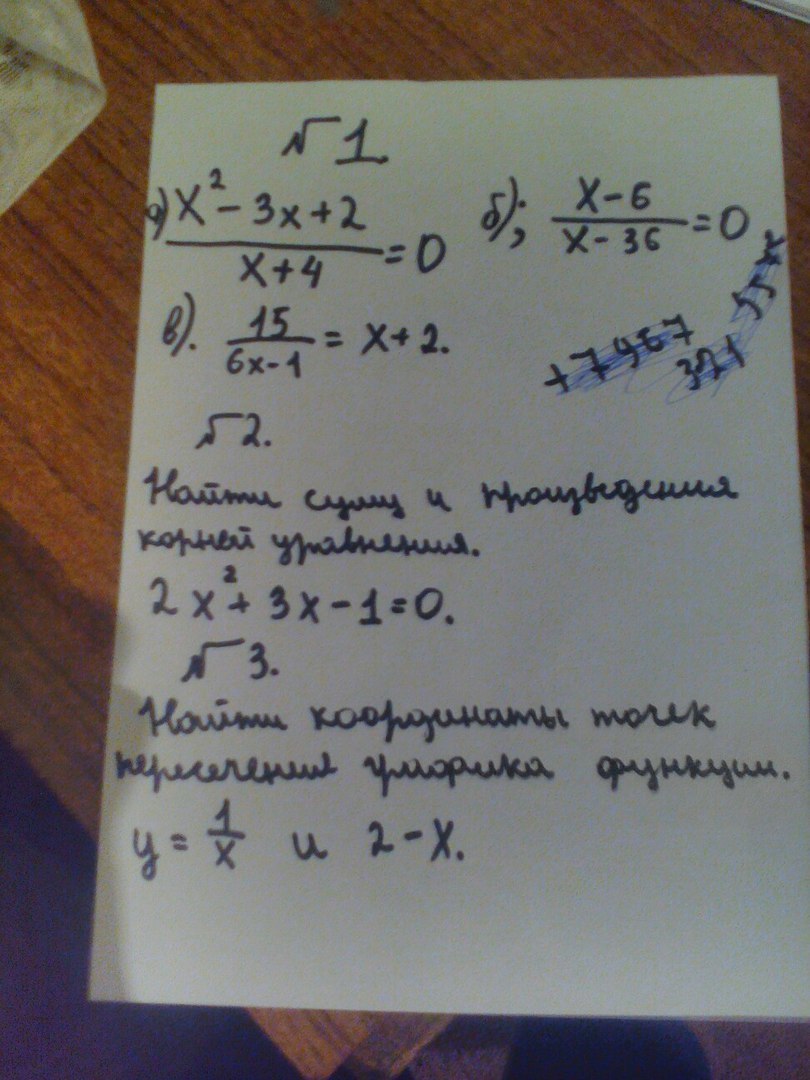 №1
а) x²-3x+2 / x+4 = 0 б); x-6 / x-36 = 0
в). 15 / 6x-1 = x+2.
№2.
Найти сумм и произведения
корней уравнения.
2x²+3x-1=0.
№3.
Найти координаты точек
пересечения графика функции.
y = 1/x и 2-x.